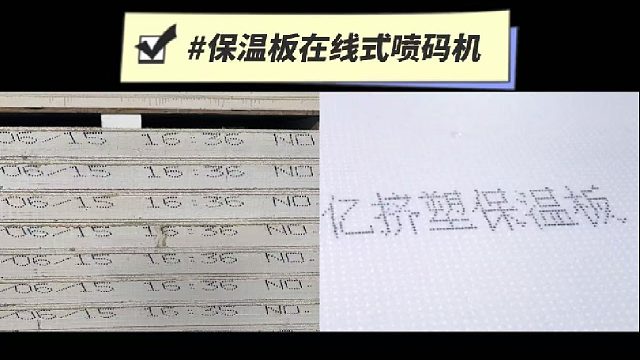 #保温板在线式喷码机
06/15 16:36 NO.
06/15 16:36 NO.
06/15 16:36 NO
06/15 16:36 NO.
06/15 16:36 NO.
06/15 16:35 NO.
06/15 16:35 NO.
亿挤塑保温板